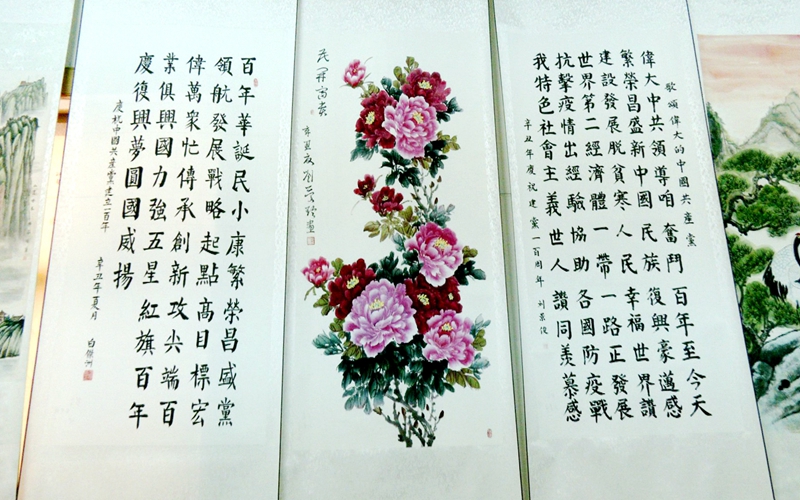 歌頌偉大的中國共產黨
偉大中共領導咱奮鬥百年至今天
繁榮昌盛新中國民族復興豪邁感
建設發展脫貧寒人民幸福世界讚
世界第二經濟體一帶一路正發展
抗擊疫情出經驗協助各國防疫戰
我特色社會主義世人讚同羨慕感
辛丑年慶祝建黨一百周年
花开富贵
百年華誕民小康繁榮昌盛黨
領航發展戰略起點高目標宏
偉萬眾忙傳承創新攻尖端百
業俱興國力強五星紅旗百年
慶復興夢圓國威揚
慶祝中國共產黨建立一百年
辛丑年夏月